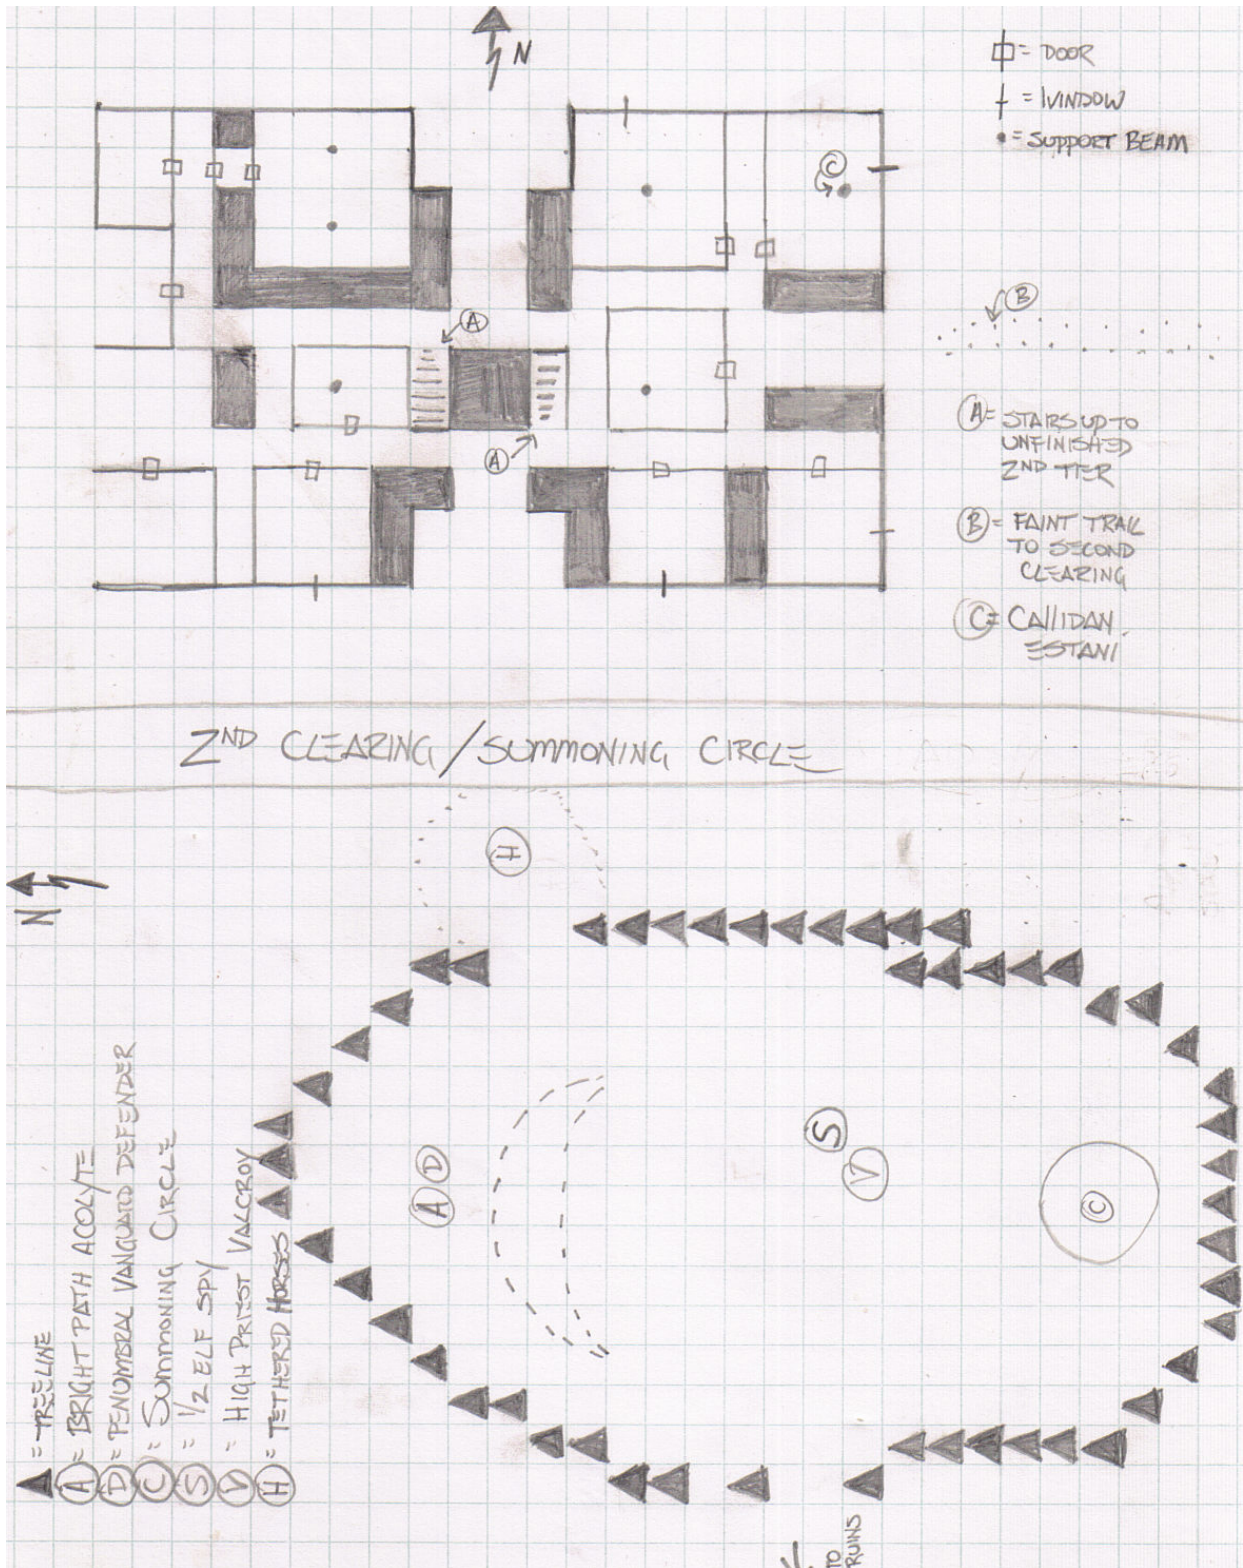 N
= DOOR
= WINDOW
= SUPPORT BEAM
C
A
B
A
A = STAIRS UP TO
UNFINISHED
2ND TIER
B = FAINT TRAIL
TO SECOND
CLEARING
C = CALLIDAN
ESTANI
2ND CLEARING/SUMMONING CIRCLE
H
N
S
V
D
A
C
= TREELINE
A = BRIGHT PATH ACOLYTE
D = PENUMBRAL VANGUARD DEFENDER
C = SUMMONING CIRCLE
S = 1/2 ELF SPY
V = HIGH PRIEST VALCROY
H = TETHERED HORSES
TO
RUINS